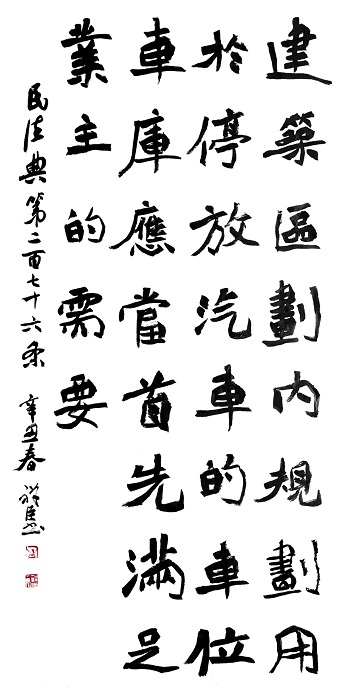 建築區劃內規劃用
於停放汽車的車位
車庫應當首先滿足
業主的需要
民法典第二百七十六条 辛丑春